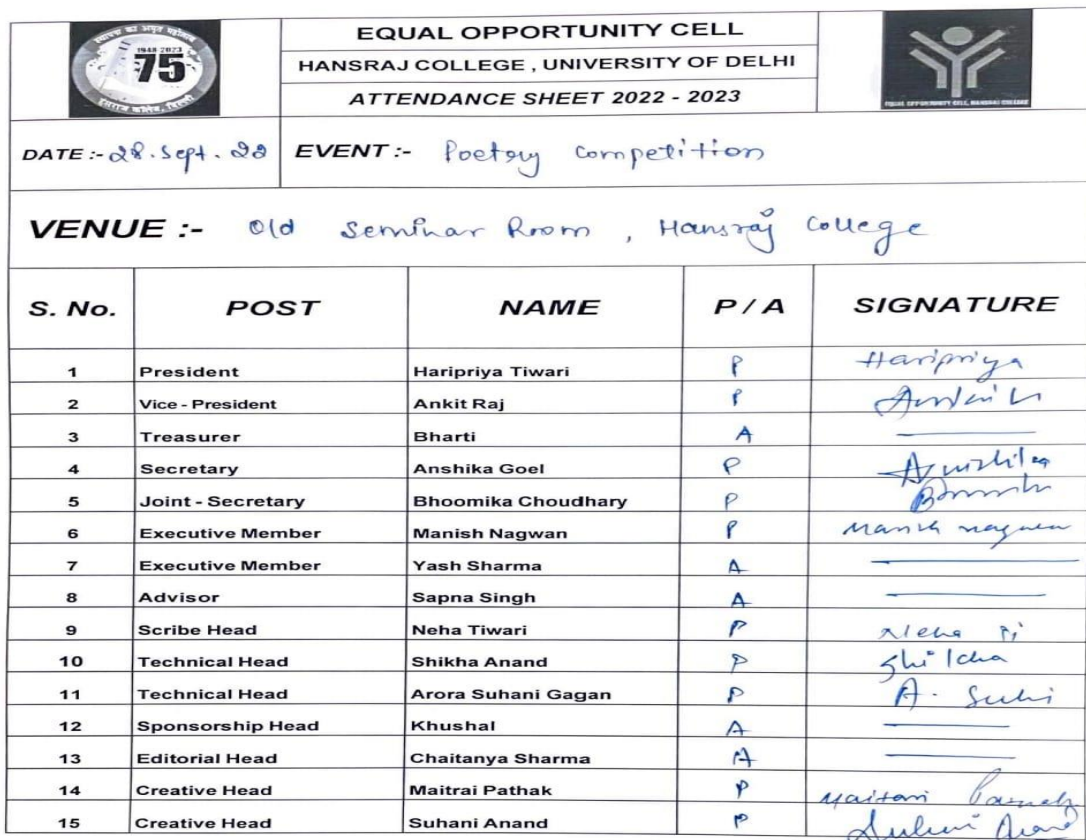 स्थापना का अमृत महोत्सव
1948-2023
75
हंसराज कॉलेज, दिल्ली
EQUAL OPPORTUNITY CELL
HANSRAJ COLLEGE , UNIVERSITY OF DELHI
ATTENDANCE SHEET 2022 - 2023
EQUAL OPPORTUNITY CELL, HANSRAJ COLLEGE
DATE :- 28. Sept. 22 EVENT :- Poetry Competition
VENUE :- Old Seminar Room , Hansraj College
S. No. POST NAME P / A SIGNATURE
1 President Haripriya Tiwari P Haripriya
2 Vice - President Ankit Raj P
3 Treasurer Bharti A
4 Secretary Anshika Goel P
5 Joint - Secretary Bhoomika Choudhary P
6 Executive Member Manish Nagwan P Manish nagwan
7 Executive Member Yash Sharma A
8 Advisor Sapna Singh A
9 Scribe Head Neha Tiwari P Neha
10 Technical Head Shikha Anand P Shikha
11 Technical Head Arora Suhani Gagan P A.
12 Sponsorship Head Khushal A
13 Editorial Head Chaitanya Sharma A
14 Creative Head Maitrai Pathak P
15 Creative Head Suhani Anand P